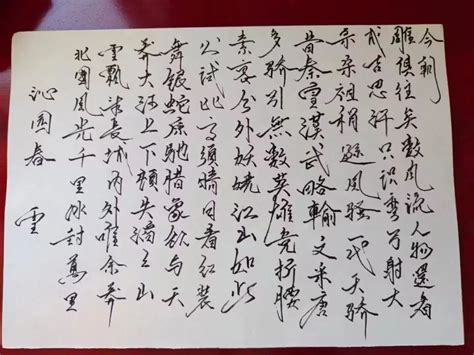 沁园春 雪
北國風光千里冰封萬里
雪飄望長城内外唯余莽
莽大河上下頓失滔滔山
舞銀蛇原馳腊象欲与天
公試比高須晴日看红装
素裹分外妖嬈江山如此
多骄引無數英雄竞折腰
昔秦皇漢武略輸文采唐
宗宋祖稍遜風骚一代天骄
成吉思汗只识弯弓射大
雕俱往矣数風流人物還看
今朝